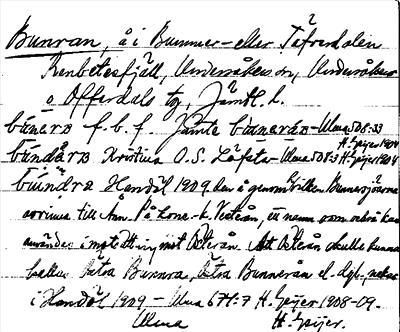 Bunran, å i Bunner- eller Täfredalen
Renbetesfjäll, Undersåkers sn, Undersåkers
o. Offerdals tg, Jämtl. l.
bùnerɒ f. b. f. Jämte Ulma 508:33 H. Geijer 1904
Kristina O. S. Ulma 508:3 H Geijer 1904
Handöl 1909, den å genom hvilken Bunnersjöarna
rinna till Ånn. På kone.-k. Vesterån, ett namn som också kan
användas i motsättning mot Österån. Att Österån skulle kunna
heta Bunnra, Bunnerån el. dyl., nekas
i Handöl 1909 – Ulma 677:7 H. Geijer 1908-09.
Ulma H. Geijer.